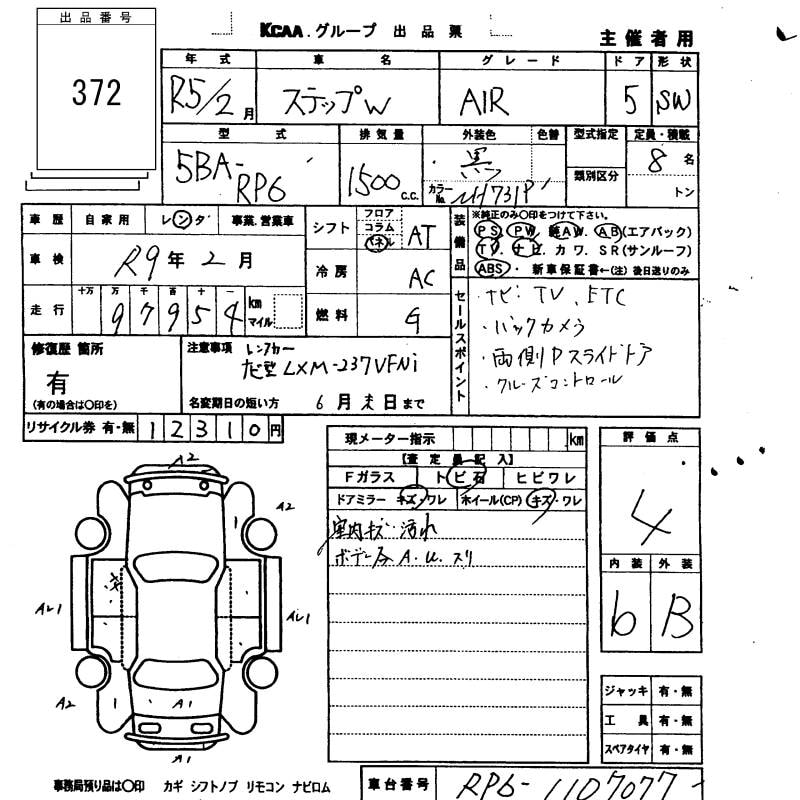 出品番号
372
KCAA グループ 出品票
主催者用
年式 車名 グレード ドア 形状
R5/2月 ステップW AIR 5 SW
型式 排気量 外装色 色替 型式指定 定員・積載
5BA-RP6 1500 c.c. 黒 カラーNo. NH731P 類別区分 8名 トン
車歴 自家用 レンタ 事業.営業車
車検 R9年2月
走行 十万 万 千 百 十 一 km マイル
97954
シフト フロア コラム インパネ AT
冷房 AC
燃料 G
装備品 ※純正のみ○印をつけて下さい。
PS. PW. 純AW. AB(エアバック)
TV. ナビ. カワ. SR(サンルーフ)
ABS. 新車保証書←(注)後日送りのみ
セールスポイント
・ナビ・TV、ETC
・バックカメラ
・両側Pスライドドア
・クルーズコントロール
修復歴 箇所
有
(有の場合は○印を)
注意事項 レンタカー
ナビ型LXM-237VFNi
名変期日の短い方 6月末日まで
リサイクル券 有・無 12310円
現メーター指示 km
【査定員記入】
Fガラス トビ石 ヒビワレ
ドアミラー キズ・ワレ ホイール(CP) キズ・ワレ
室内キズ・汚れ
ボデー各A.U.スリ
評価点
4
内装 外装
b B
A2
A2
1
AL1 AL1
A2 1 A1
A1
ジャッキ 有・無
工具 有・無
スペアタイヤ 有・無
事務局預り品は○印 カギ シフトノブ リモコン ナビロム
車台番号 RP6-1107077